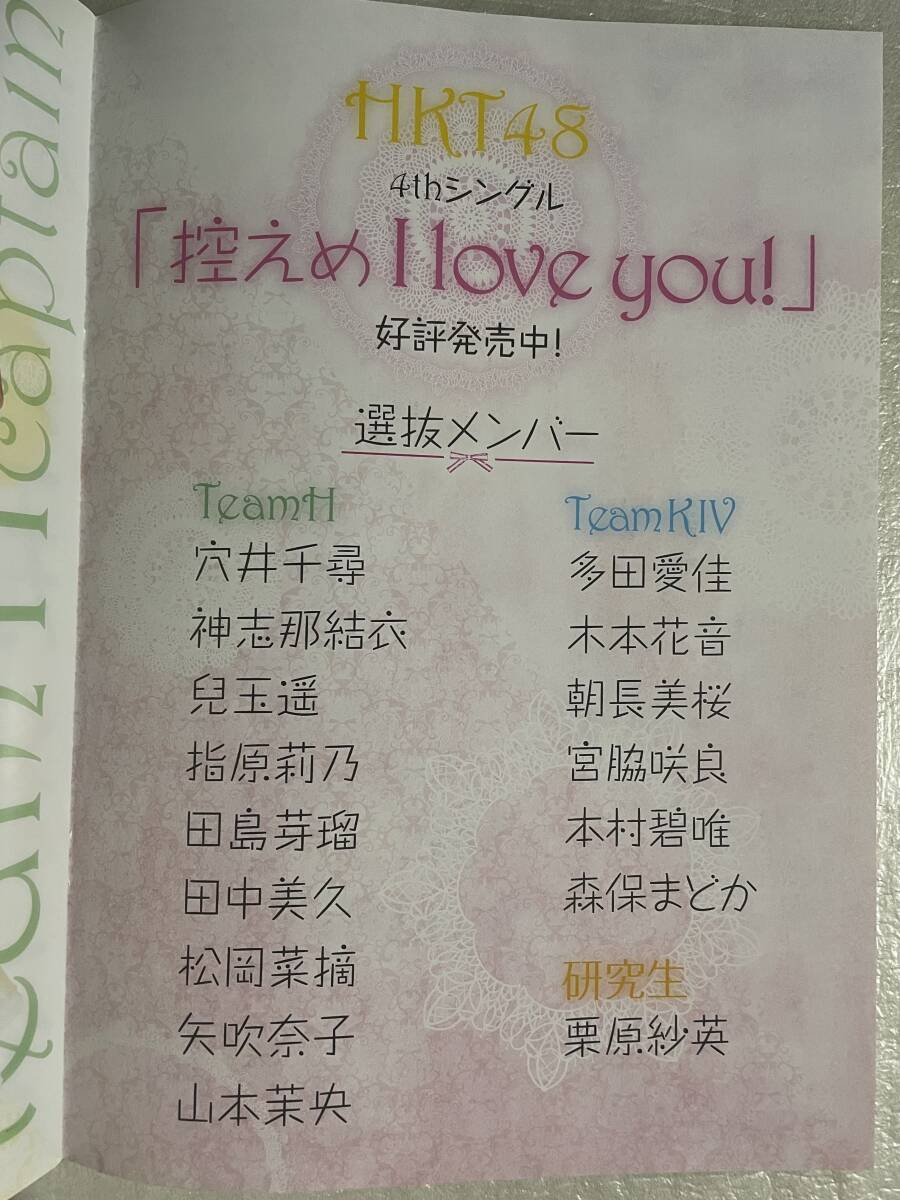 HKT48
4thシングル
「控えめ I love you!」
好評発売中!
選抜メンバー
TeamH
穴井千尋
神志那結衣
兒玉遥
指原莉乃
田島芽瑠
田中美久
松岡菜摘
矢吹奈子
山本茉央
TeamKIV
多田愛佳
木本花音
朝長美桜
宮脇咲良
本村碧唯
森保まどか
研究生
栗原紗英